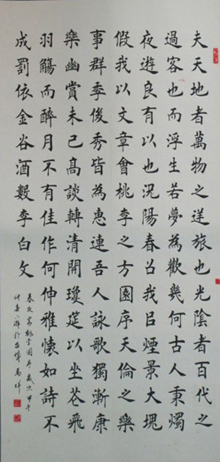 夫天地者萬物之逆旅也光陰者百代之
過客也而浮生若夢為歡幾何古人秉燭
夜遊良有以也況陽春召我以煙景大塊
假我以文章會桃李之芳園序天倫之樂
事群季俊秀皆為惠連吾人詠歌獨慚康
樂幽賞未已高談轉清開瓊筵以坐花飛
羽觴而醉月不有佳作何伸雅懷如詩不
成罰依金谷酒數李白文
春夜宴桃李園序歲次甲午